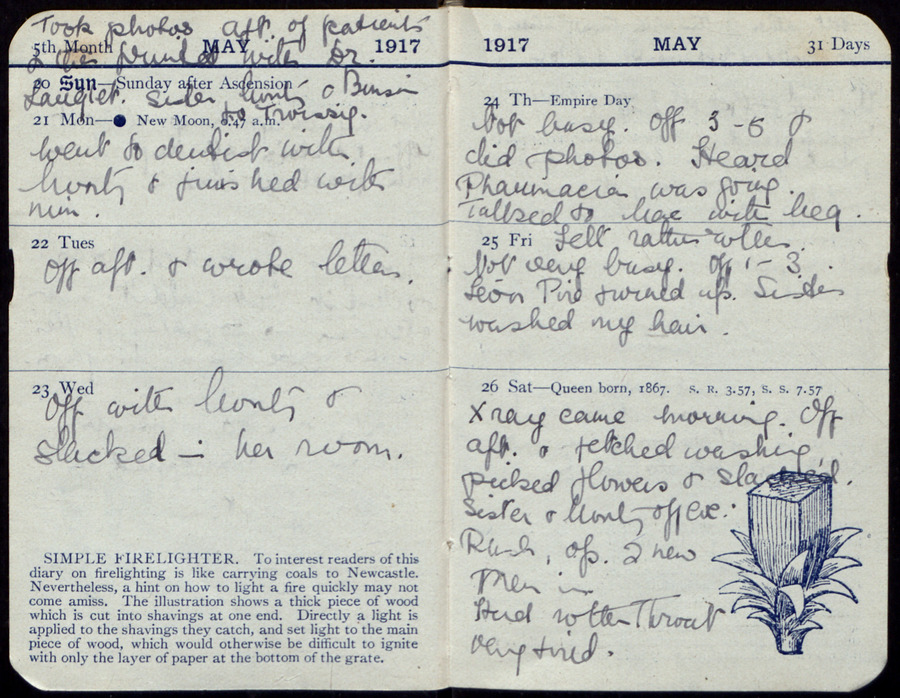 Took photos aft. of patients
5th Month MAY 1917
& then with Dr.
20 Sun—Sunday after Ascension
Sister & 
21 Mon—● New Moon, 0.47 a.m.
to
Went to dentist with
& finished with
him.
22 Tues
Off aft. & wrote letters.
23 Wed
Off with &
slacked in her room.
SIMPLE FIRELIGHTER. To interest readers of this
diary on firelighting is like carrying coals to Newcastle.
Nevertheless, a hint on how to light a fire quickly may not
come amiss. The illustration shows a thick piece of wood
which is cut into shavings at one end. Directly a light is
applied to the shavings they catch, and set light to the main
piece of wood, which would otherwise be difficult to ignite
with only the layer of paper at the bottom of the grate.
1917 MAY 31 Days
24 Th—Empire Day
Not busy. Off 3-6 &
did photos. Heard
Pharmacien was going.
Talked to with
25 Fri Felt rather rotten.
Not very busy. Off 1-3.
Léon turned up. Sister
washed my hair.
26 Sat—Queen born, 1867. S. R. 3.57, S. S. 7.57
Xray came morning. Off
aft. & fetched washing,
picked flowers & slacked.
Sister & off eve.
op. 2 new
men in
Had rotten Throat
very tired.